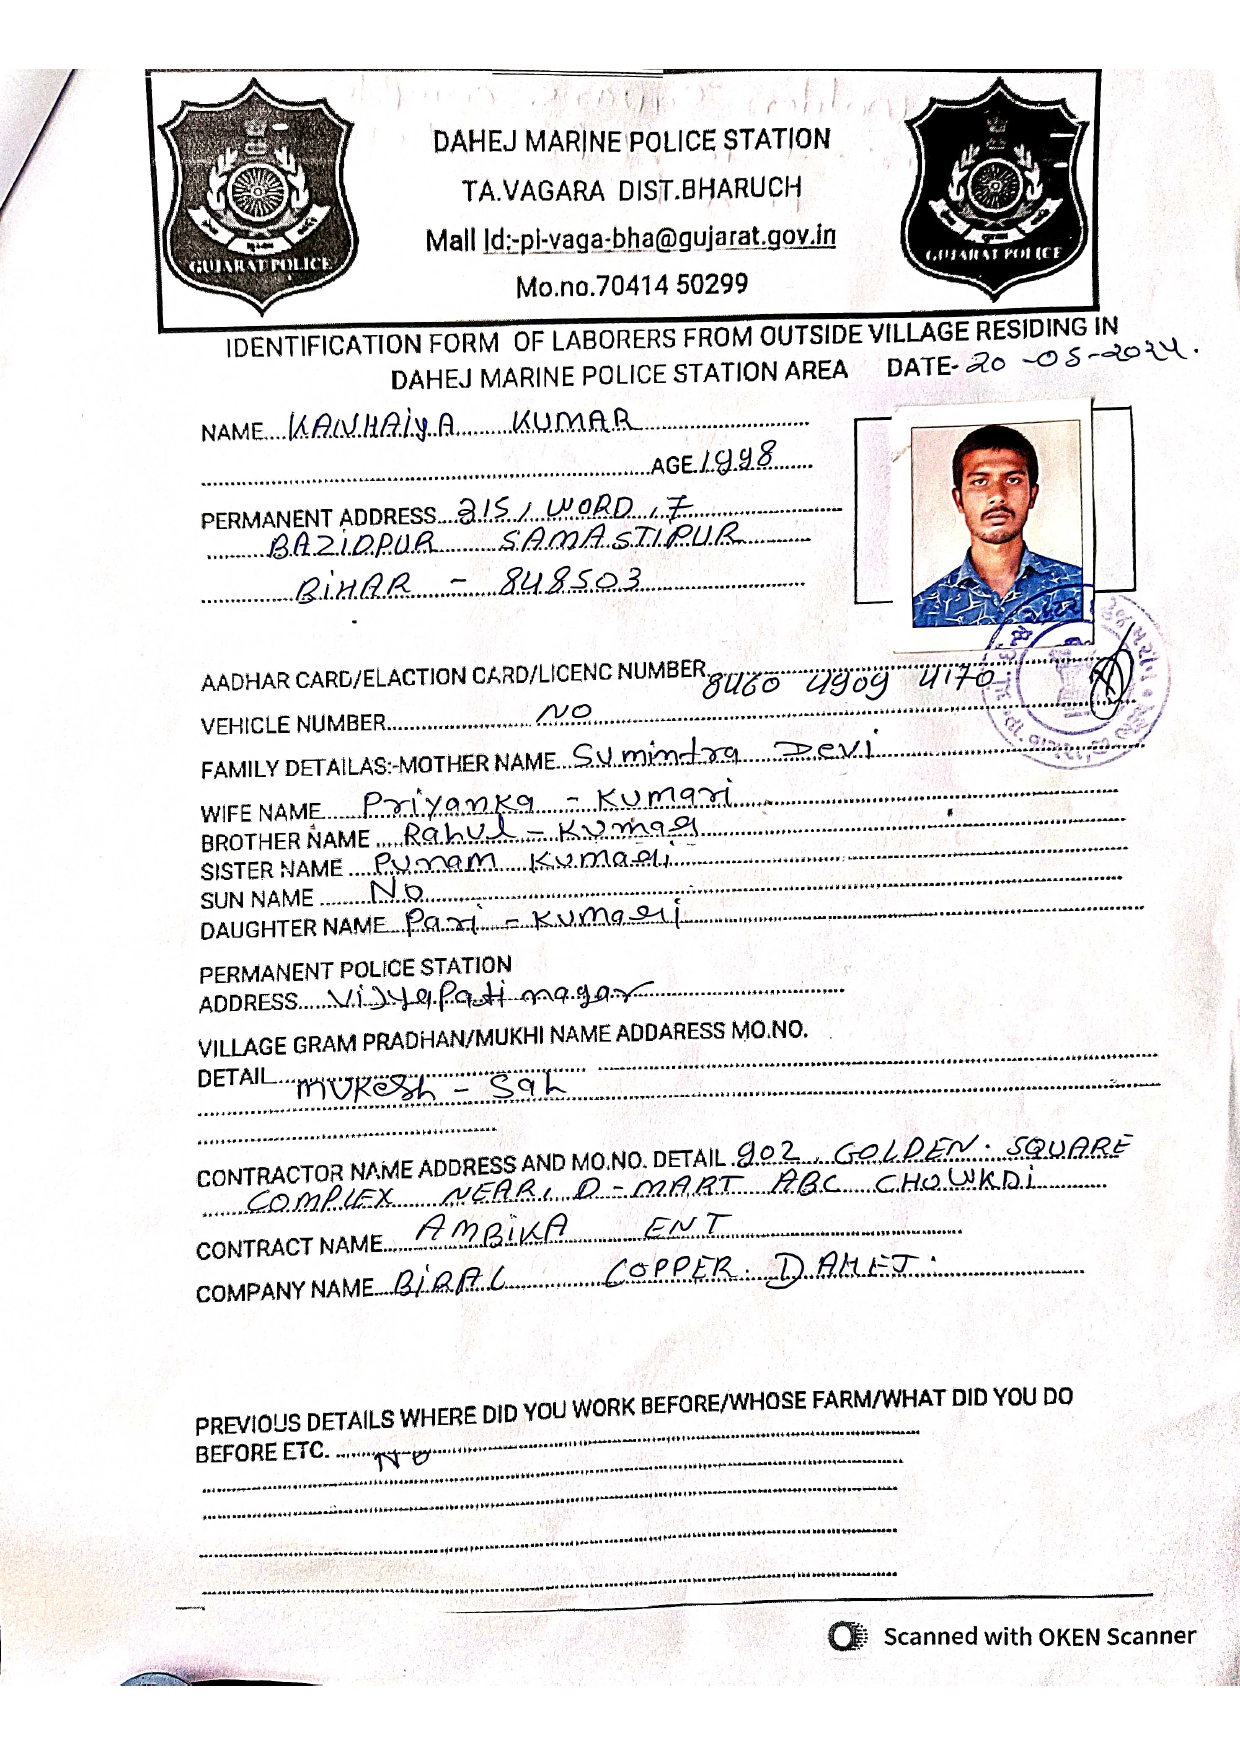 DAHEJ MARINE POLICE STATION
TA.VAGARA DIST.BHARUCH
Mail Id:-pi-vaga-bha@gujarat.gov.in
Mo.no.70414 50299
GUJARAT POLICE
GUJARAT POLICE
IDENTIFICATION FORM OF LABORERS FROM OUTSIDE VILLAGE RESIDING IN
DAHEJ MARINE POLICE STATION AREA DATE- 20-05-2024.
NAME....KANHAIYA KUMAR
AGE.1998
PERMANENT ADDRESS...215, WORD, 7
BAZIDPUR SAMASTIPUR
BIHAR - 848503
AADHAR CARD/ELACTION CARD/LICENC NUMBER. 8460 4909 4170
VEHICLE NUMBER.... NO
FAMILY DETAILAS:-MOTHER NAME...Sumindra Devi
WIFE NAME....Priyanka - Kumari
BROTHER NAME ....Rahul - Kumar
SISTER NAME ....Punam Kumari
SUN NAME ....No
DAUGHTER NAME...Pari - Kumari
PERMANENT POLICE STATION
ADDRESS....Vidyapati nagar
VILLAGE GRAM PRADHAN/MUKHI NAME ADDARESS MO.NO.
DETAIL...Mukesh - Sah
CONTRACTOR NAME ADDRESS AND MO.NO. DETAIL .902, GOLDEN. SQUARE
COMPLEX NEAR, D-MART ABC CHOWKDI
CONTRACT NAME.... AMBIKA ENT
COMPANY NAME....BIRAL COPPER. DAHEJ.
PREVIOUS DETAILS WHERE DID YOU WORK BEFORE/WHOSE FARM/WHAT DID YOU DO
BEFORE ETC. ....NO
Scanned with OKEN Scanner